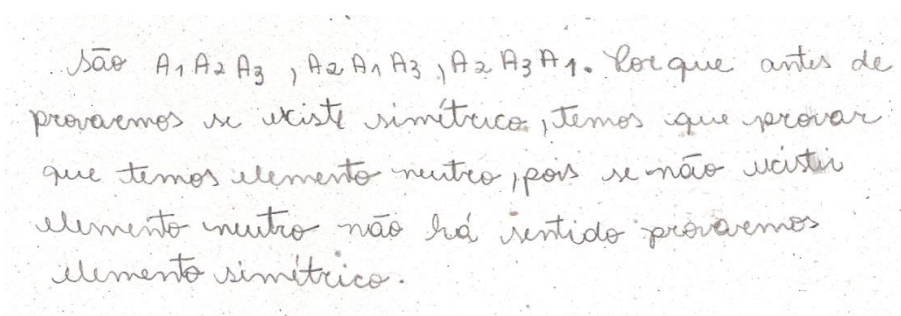 São A1 A2 A3 , A2 A1 A3 , A2 A3 A1. Porque antes de
provarmos se existe simétrico, temos que provar
que temos elemento neutro, pois se não existir
elemento neutro não há sentido provarmos
elemento simétrico.